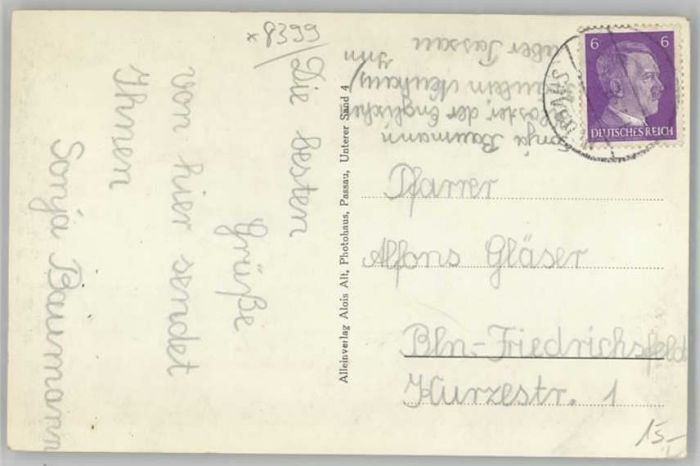 * 8399
Die besten
Grüße
von hier sendet
Ihnen
Sonja Baumann
Alleinverlag Alois Alt, Photohaus, Passau, Unterer Sand 4
Sonja Baumann
Kloster der Englischen
Fräulein Neuhaus/
Inn
über Passau
6 6
DEUTSCHES REICH
Pfarrer
Alfons Gläser
Bln-Friedrichsfeld
Kurzestr. 1
15,-